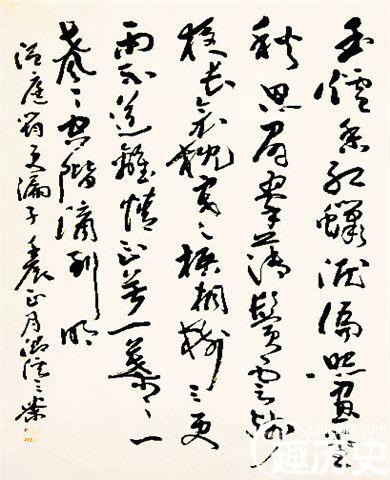 玉爐香紅蠟淚偏照畫堂
秋思眉翠薄鬢雲殘
夜長衾枕寒梧桐樹三更
雨不道離情正苦一葉〻一
聲〻空階滴到明
温庭筠更漏子 正月
趣历史